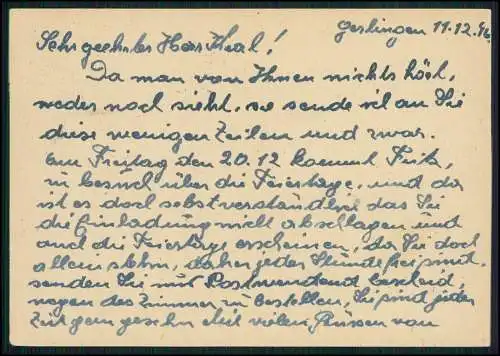 Geslingen 11.12.46.
Sehr geehrter Herr Thal!
Da man von Ihnen nichts hört,
weder noch sieht, so sende ich an Sie
diese wenigen Zeilen und zwar.
Am Freitag den 20.12 kommt Fritz,
zu besuch über die Feiertage, und da
ist es doch selbstverständlich das Sie
die Einladung nicht abschlagen und
auch die Feiertage erscheinen, da Sie doch
allein stehn, daher jeder Stunde frei sind.
senden Sie mir Postwendend bescheid,
wegen des Zimmer zu bestellen, Sie sind jeder
Zeit gern gesehn Mit vielen Grüssen von